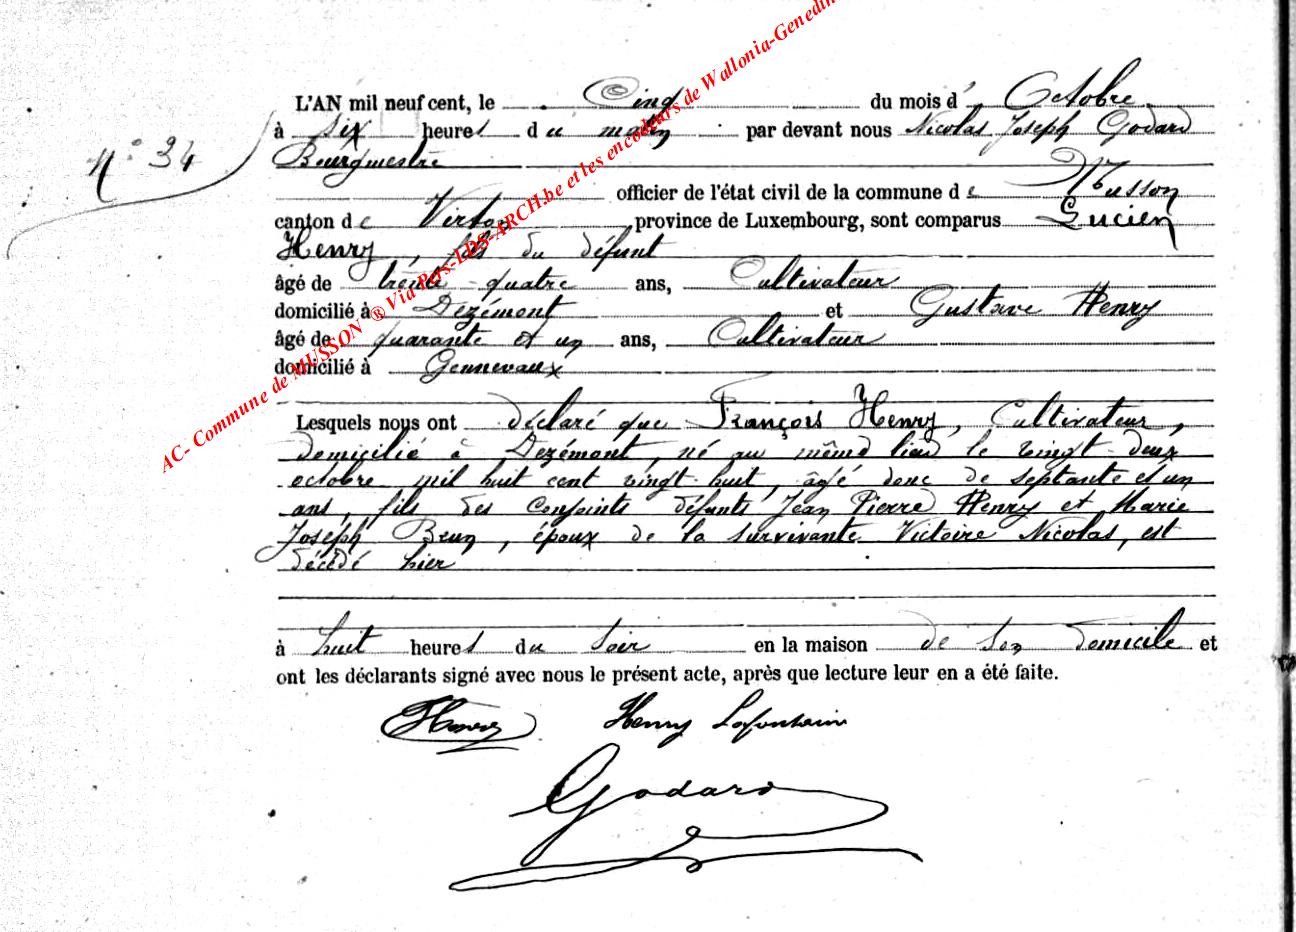 AC- Commune de MUSSON ® Via PGS-LDS-ARCH.be et les encodeurs de Wallonia-Genedin
n° 34
L'AN mil neuf cent, le Cinq du mois d' Octobre
à six heures du matin par devant nous Nicolas Joseph Godard
Bourgmestre
officier de l'état civil de la commune de Musson
canton de Virton province de Luxembourg, sont comparus Lucien
Henry, fils du défunt
âgé de trente-quatre ans, Cultivateur
domicilié à Dezémont et Gustave Henry
âgé de quarante et un ans, Cultivateur
domicilié à Gennevaux
Lesquels nous ont déclaré que François Henry, Cultivateur,
domicilié à Dezémont, né au même lieu le vingt-deux
octobre mil huit cent vingt-huit, âgé donc de septante et un
ans, fils des Conjoints défunts Jean Pierre Henry et Marie
Joseph Beun, époux de la survivante Victoire Nicolas, est
décédé hier
à huit heures du soir en la maison de son domicile et
ont les déclarants signé avec nous le présent acte, après que lecture leur en a été faite.
Henry Henry Lafontaine
Godard